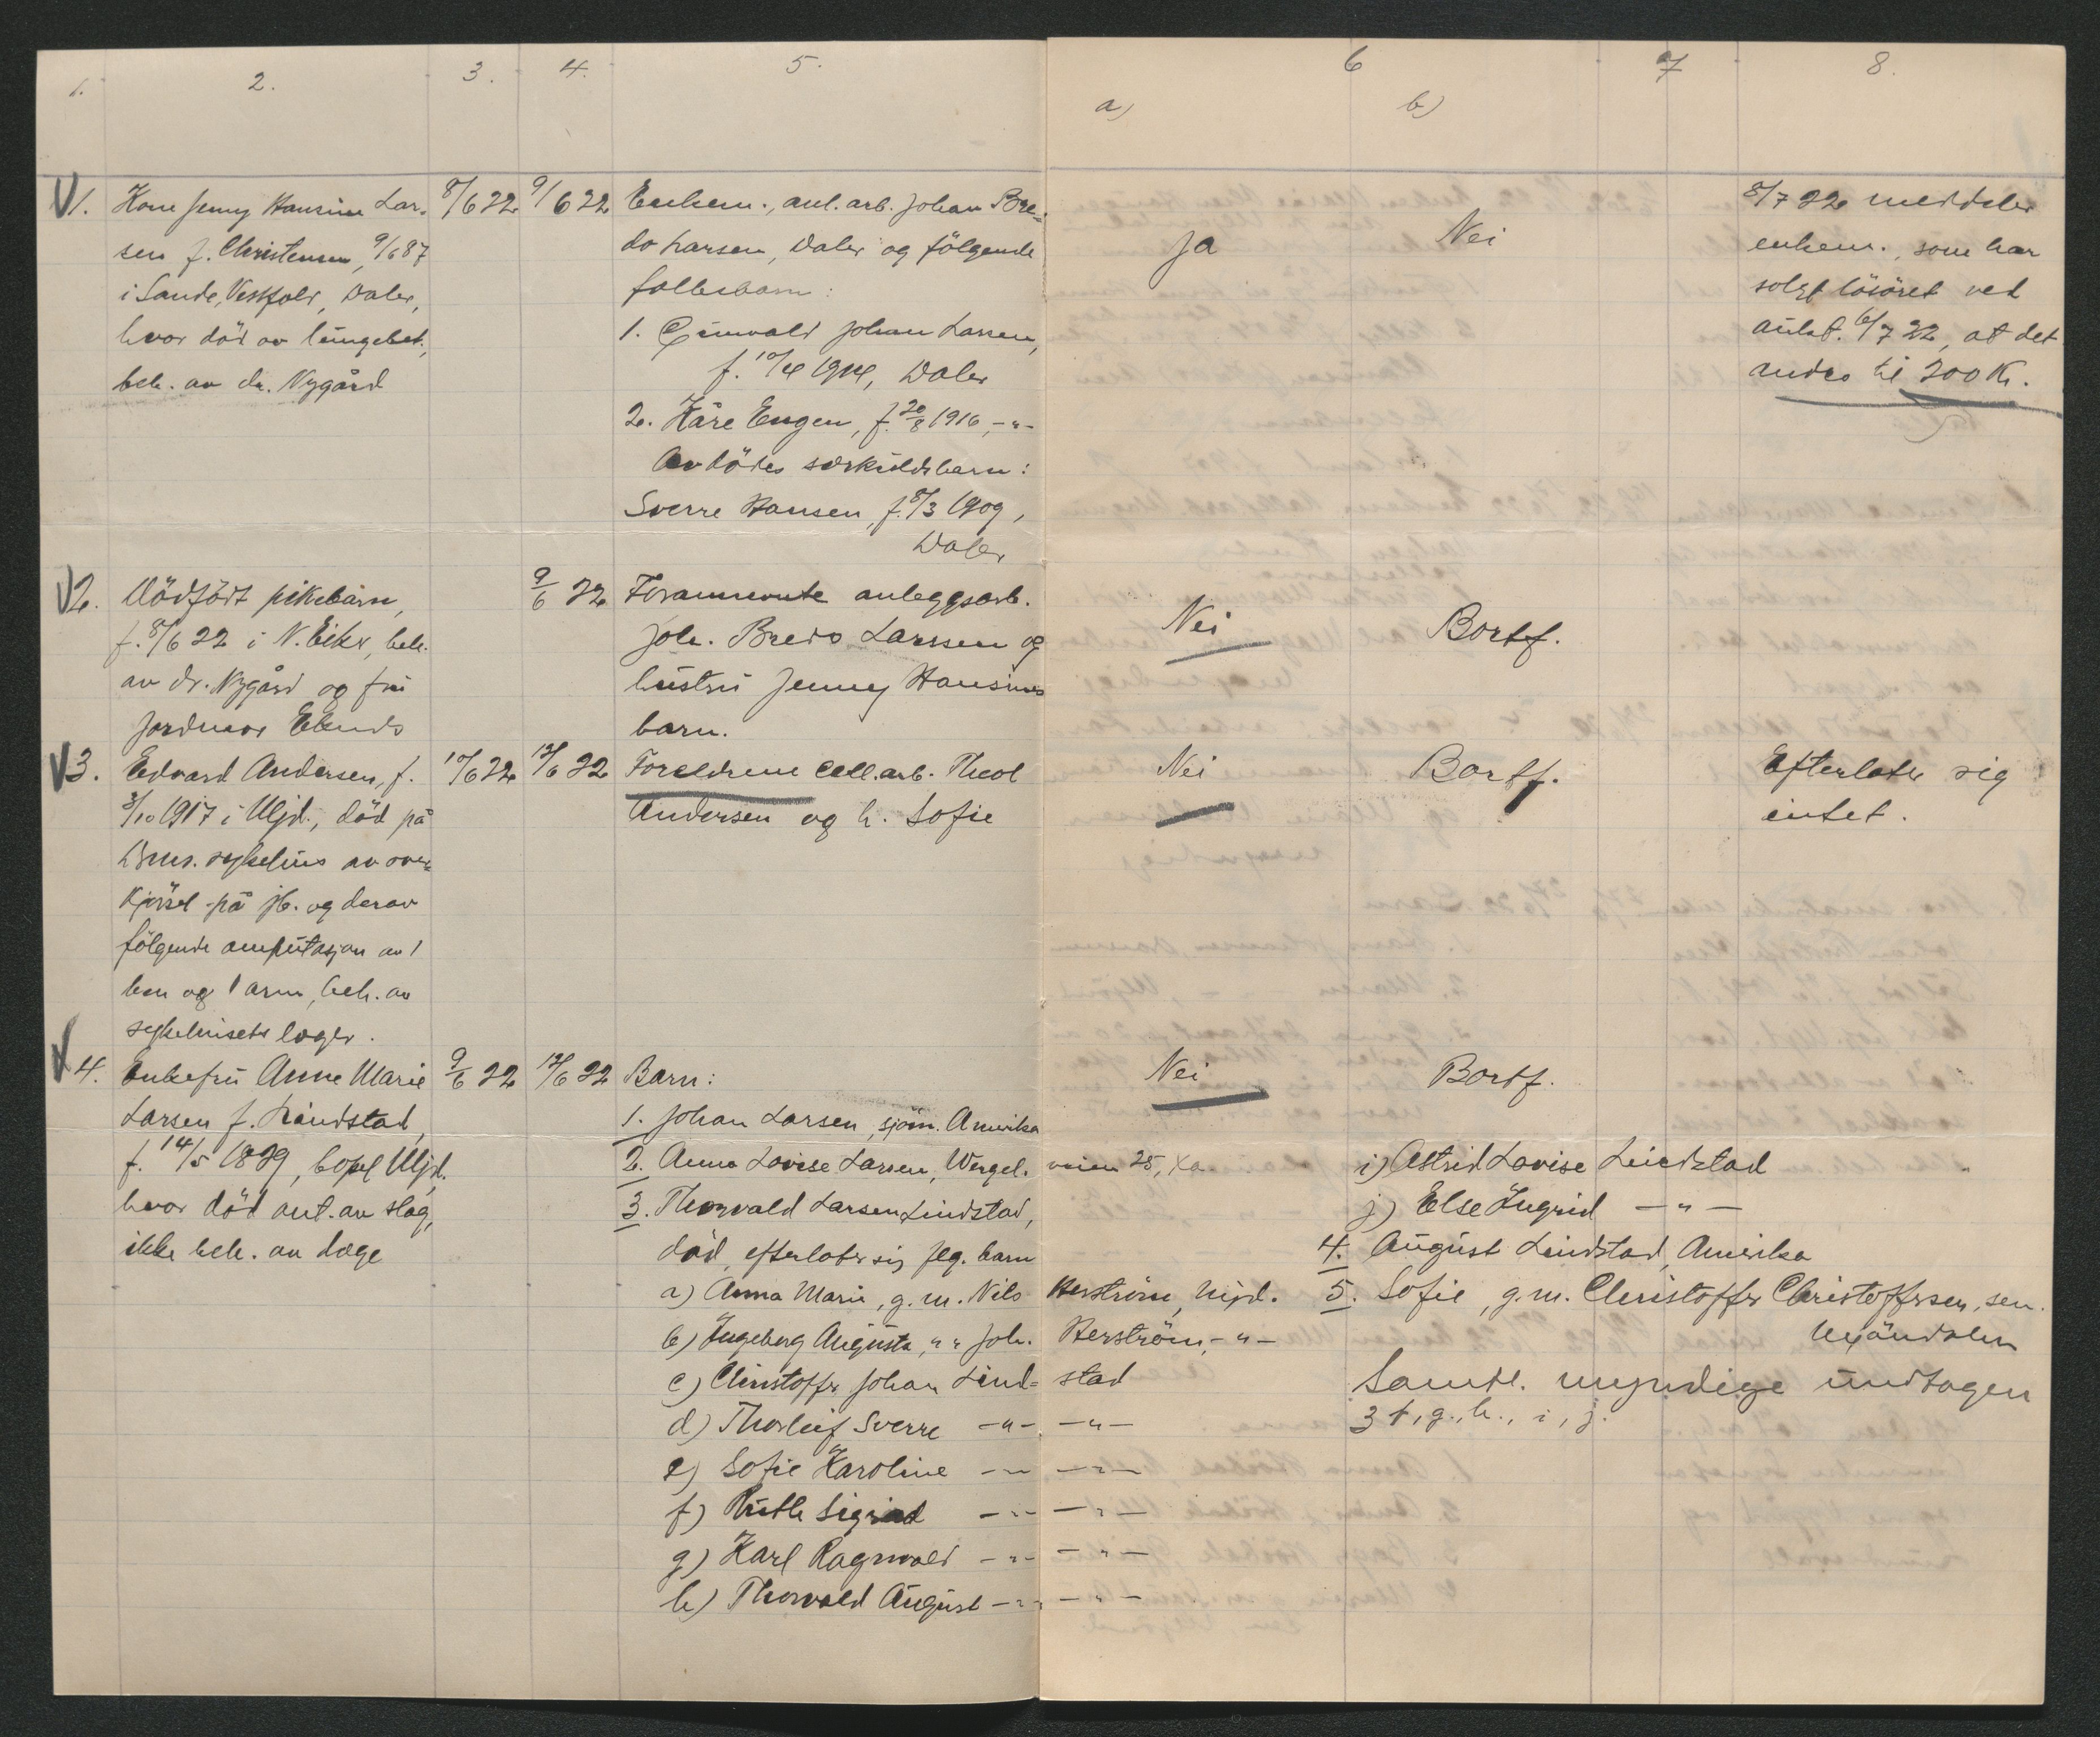 1. 2. 3. 4. 5. 6 7 8.
a) b)
1. Kone Jenny Hansine Lar-
sen f. Christensen, 9/6 87
i Sande, Vestfold, Daler,
hvor död av lungebet.,
beh. av dr. Nygård
8/6 22 9/6 22
Enkem., anl.arb. Johan Bre-
do Larsen, Daler og följende
fellesbarn:
1. Gunvald Johan Larsen,
f. 10/4 1914, Daler
2. Kåre Eugen, f. 20/8 1916, -"-
Avdödes særkuldsbarn:
Sverre Hansen, f. 8/3 1909,
Daler
Ja
Nei
8/7 22 meddeler
enkem., som har
solgt lösöret ved
aukt. 6/7 22, at det
andro til 200 Kr.
2. Dödfödt pikebarn,
f. 8/6 22 i N. Eiker, beh.
av dr. Nygård og fru
jordmor Eknes
9/6 22
Forannevnte anleggsarb.
Joh. Bredo Larssen og
hustru Jenny Hansines
barn.
Nei
Bortf.
3. Edvard Andersen, f.
3/10 1917 i Mjd., död på
Drms. sykehus av over-
kjörsel på jb. og derav
fölgende amputasjon av 1
ben og 1 arm, beh. av
sykehusets læger.
10/6 22 12/6 22
Foreldrene cell.arb. Theol
Andersen og h. Sofie
Nei
Bortf.
Efterlater sig
intet.
4. Enkefru Anne Marie
Larsen f. Lindstad,
f. 14/5 1839, bopl Mjd.,
hvor död ant. av slag,
ikke beh. av læge
9/6 22 12/6 22
Barn:
1. Johan Larsen, sjöm. Amerika
2. Anna Lovise Larsen, Wergel. veien 25, Xa.
3. Thorvald Larsen Lindstad,
död, efterlater sig flg. barn
a) Anna Marie, g. m. Nils Herström, Mjd.
b) Ingeborg Augusta, " " Joh. Herström, -"-
c) Christoffer Johan Lind- stad
d) Thorleif Sverre -"- -"-
e) Sofie Karoline -"- -"-
f) Ruth Sigrid -"- -"-
g) Karl Ragnvald -"- -"-
h) Thorvald August -"- -"-
Nei
Bortf.
i) Astrid Lovise Lindstad
j) Else Ingrid -"-
4. August Lindstad, Amerika
5. Sofie, g.m. Christoffer Christoffersen, sen.
Mjöndalen
Samtl. myndige undtagen
3 f, g., h., i, j.